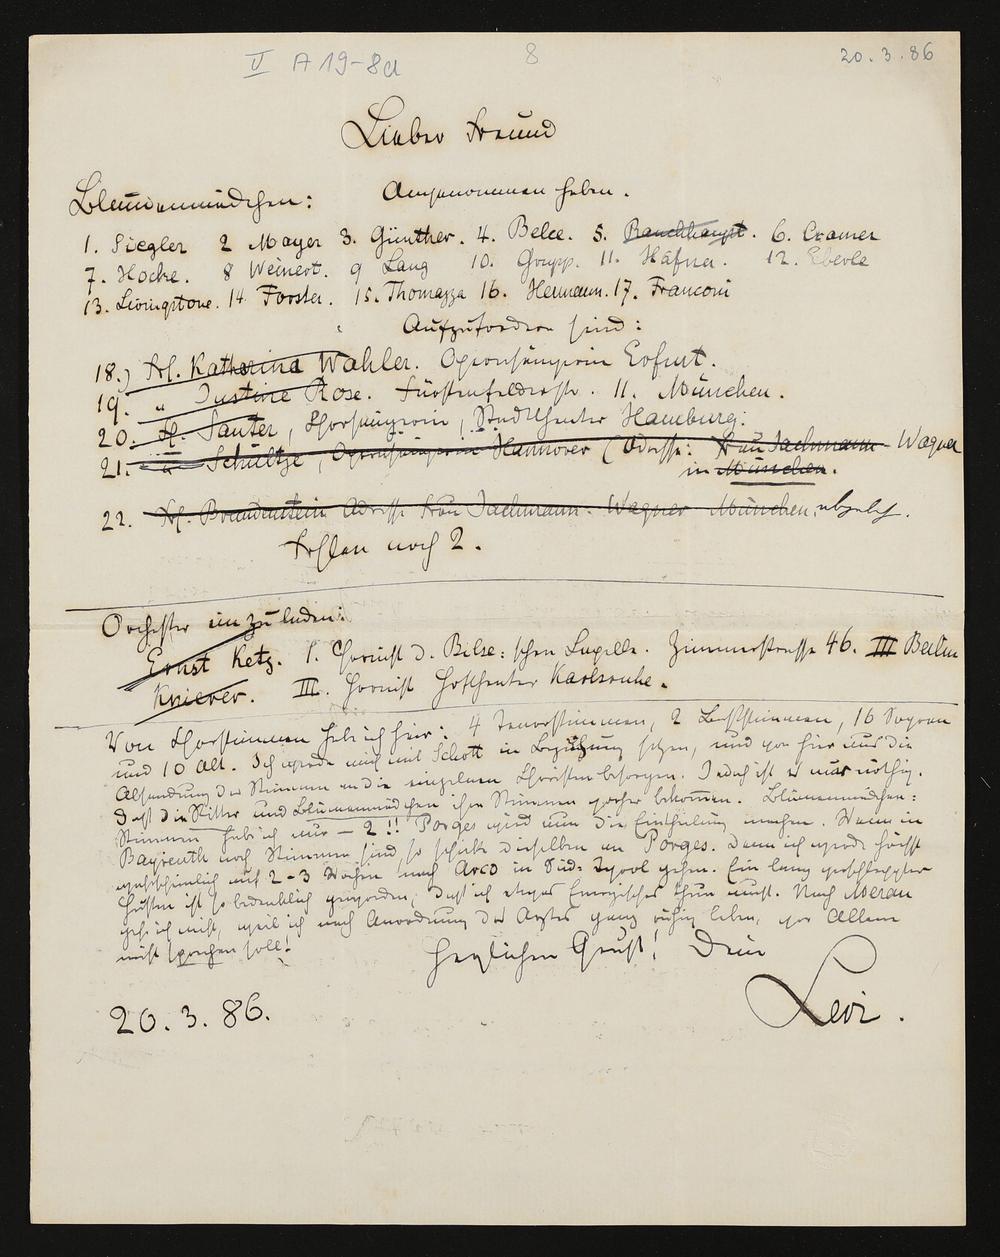 V A 19-8d 8 20.3.86
Lieber Freund
Blumenmädchen: Angenommen haben.
1. Siegler 2 Mayer 3. Günther. 4. Belce. 5. Bauchhaupt. 6. Cramer
7. Hocke. 8 Weinert. 9 Lang 10. Grupp. 11. Häfner. 12. Eberle
13. Livingstone. 14 Forster. 15. Thomazza 16. Hermann. 17. Franconi
Aufzufordern sind:
18.) Frl. Katherina Wahler. Opernsängerin Erfurt.
19. " Justine Rose. Fürstenfelderstr. 11. München.
20. Frl. Sauter, Chorsängerin, Stadttheater Hamburg.
21. " Schultze, Opernsängerin Hannover (Adresse: Frau Jachmann-Wagner
in München.
22. Frl. Brandenstein Adresse Frau Jachmann-Wagner München. abgelehnt.
Fehlen noch 2.
Orchester einzuladen:
Ernst Ketz. 1. Hornist d. Bilse'schen Capelle. Zimmerstrasse 46. III Berlin
Knierer. III. Hornist Hoftheater Karlsruhe.
Von Chorstimmen hab ich hier: 4 Tenorstimmen, 2 Bassstimmen, 16 Sopran
und 10 Alt. Ich werde mich mit Schott in Beziehung setzen, und von hier aus die
Absendung der Stimmen an die einzelnen Choristen besorgen. Jedoch ist es nur nöthig,
daß die Ritter und Blumenmädchen ihre Stimmen vorher bekommen. Blumenmädchen:
Stimmen hab ich nur – 2!! Porges wird nun die Eintheilung machen. Wenn in
Bayreuth noch Stimmen sind, so schick dieselben an Porges. Denn ich werde höchst
wahrscheinlich auf 2-3 Wochen nach Arco in Süd-Tyrol gehen. Ein lang verschleppter
Husten ist so bedenklich geworden, daß ich etwas Energisches thun muß. Nach Meran
geh ich nicht, weil ich nach Anordnung des Arztes ganz ruhig leben, vor Allem
nicht sprechen soll!
Herzlichen Gruß! Dein
20.3.86. Levi.